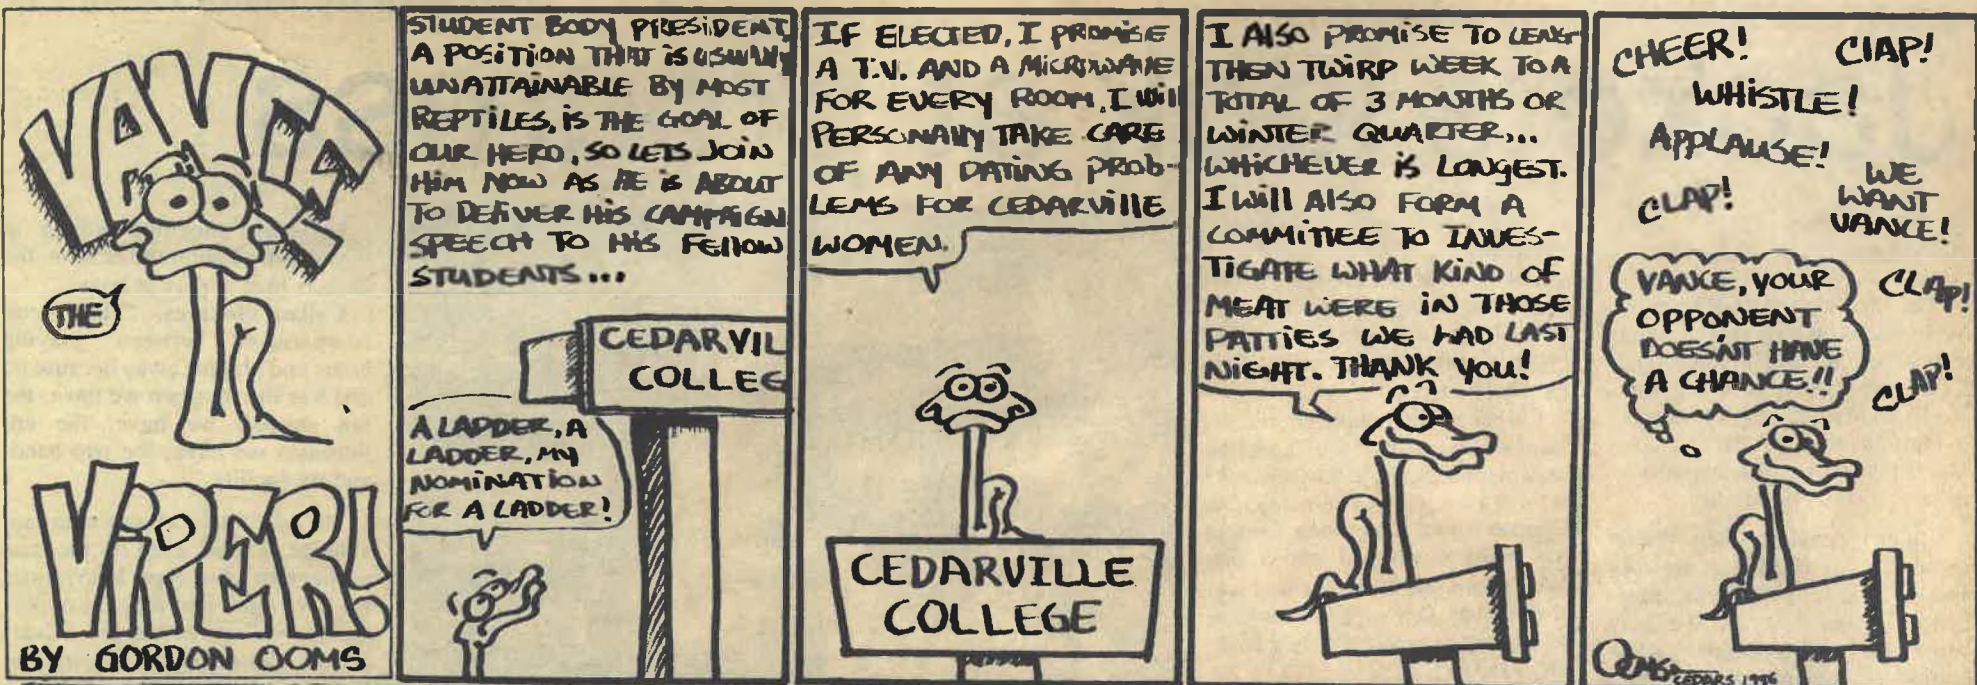 VANCE
THE
VIPER!
BY GORDON OOMS
STUDENT BODY PRESIDENT,
A POSITION THAT IS USUALLY
UNATTAINABLE BY MOST
REPTILES, IS THE GOAL OF
OUR HERO, SO LETS JOIN
HIM NOW AS HE IS ABOUT
TO DELIVER HIS CAMPAIGN
SPEECH TO HIS FELLOW
STUDENTS...
CEDARVIL
COLLEG
A LADDER, A
LADDER, MY
NOMINATION
FOR A LADDER!
IF ELECTED, I PROMISE
A T.V. AND A MICROWAVE
FOR EVERY ROOM. I WILL
PERSONALLY TAKE CARE
OF ANY DATING PROB-
LEMS FOR CEDARVILLE
WOMEN.
CEDARVILLE
COLLEGE
I ALSO PROMISE TO LENG-
THEN TWIRP WEEK TO A
TOTAL OF 3 MONTHS OR
WINTER QUARTER,..
WHICHEVER IS LONGEST.
I WILL ALSO FORM A
COMMITTEE TO INVES-
TIGATE WHAT KIND OF
MEAT WERE IN THOSE
PATTIES WE HAD LAST
NIGHT. THANK YOU!
CHEER! CLAP!
WHISTLE!
APPLAUSE!
CLAP!
WE
WANT
VANCE!
VANCE, YOUR
OPPONENT
DOESN'T HAVE
A CHANCE!!
CLAP!
CLAP!
OOMS
CEDARS